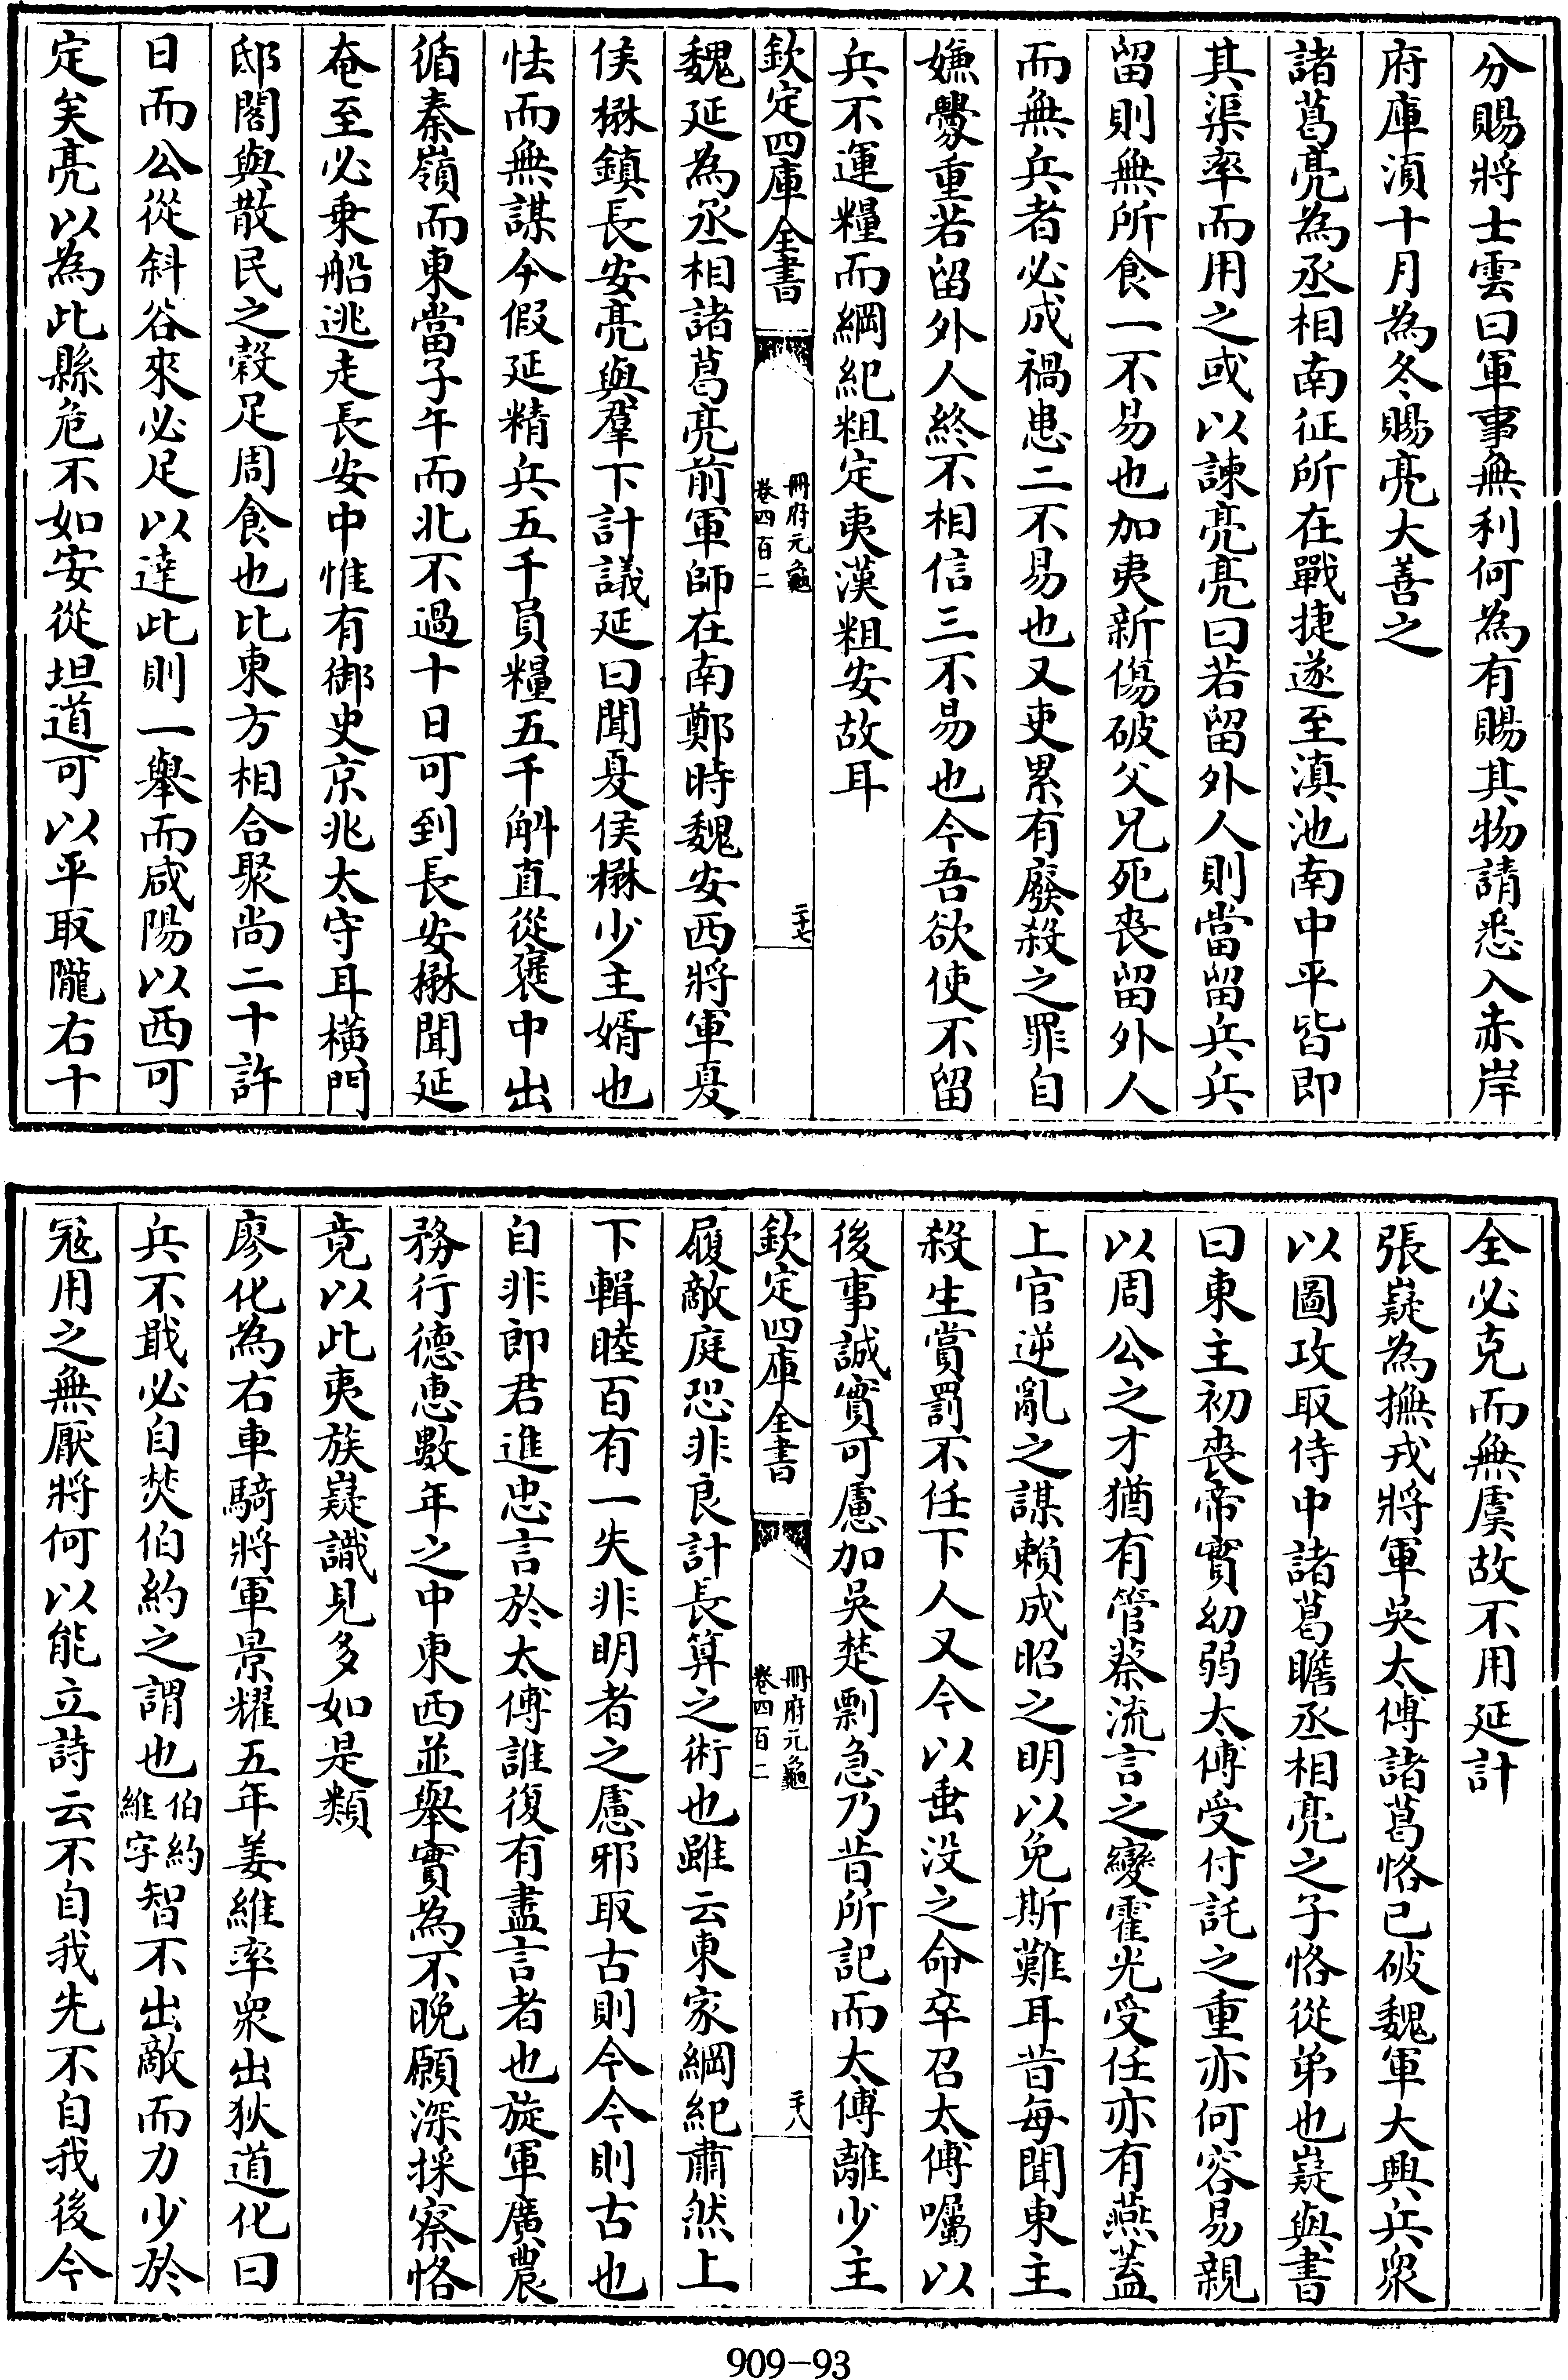 分賜將士雲曰軍事無利何為有賜其物請悉入赤岸
府庫湏十月為冬賜亮大善之
諸葛亮為丞相南征所在戰捷遂至滇池南中平皆即
其渠率而用之或以諫亮亮曰若留外人則當留兵兵
留則無所食一不易也加夷新傷破父兄死喪留外人
而無兵者必成禍患二不易也又吏累有廢殺之罪自
嫌釁重若留外人終不相信三不易也今吾欲使不留
兵不運糧而綱紀粗定夷漢粗安故耳
欽定四庫全書
冊府元龜
卷四百二
二十七
魏延為丞相諸葛亮前軍師在南鄭時魏安西將軍夏
侯楙鎮長安亮與羣下計議延曰聞夏侯楙少主婿也
怯而無謀今假延精兵五千員糧五千斛直從褒中出
循秦嶺而東當子午而北不過十日可到長安楙聞延
奄至必乘船逃走長安中惟有御史京兆太守耳橫門
邸閣與散民之穀足周食也比東方相合聚尚二十許
日而公從斜谷來必足以達此則一舉而咸陽以西可
定矣亮以為此縣危不如安從坦道可以平取隴右十
全必克而無虞故不用延計
張嶷為撫戎將軍吳太傅諸葛恪已破魏軍大興兵衆
以圖攻取侍中諸葛瞻丞相亮之子恪從弟也嶷與書
曰東主初喪帝實幼弱太傅受付託之重亦何容易親
以周公之才猶有管蔡流言之變霍光受任亦有燕蓋
上官逆亂之謀賴成昭之明以免斯難耳昔每聞東主
殺生賞罰不任下人又今以垂没之命卒召太傅囑以
後事誠實可慮加吳楚剽急乃昔所記而太傅離少主
欽定四庫全書
冊府元龜
卷四百二
二十八
履敵庭恐非良計長算之術也雖云東家綱紀肅然上
下輯睦百有一失非明者之慮邪取古則今今則古也
自非郎君進忠言於太傅誰復有盡言者也旋軍廣農
務行德惠數年之中東西並舉實為不晚願深採察恪
竟以此夷族嶷識見多如是類
廖化為右車騎將軍景耀五年姜維率衆出狄道化曰
兵不戢必自焚伯約之謂也伯約維字智不出敵而力少於
冦用之無厭將何以能立詩云不自我先不自我後今
909-93